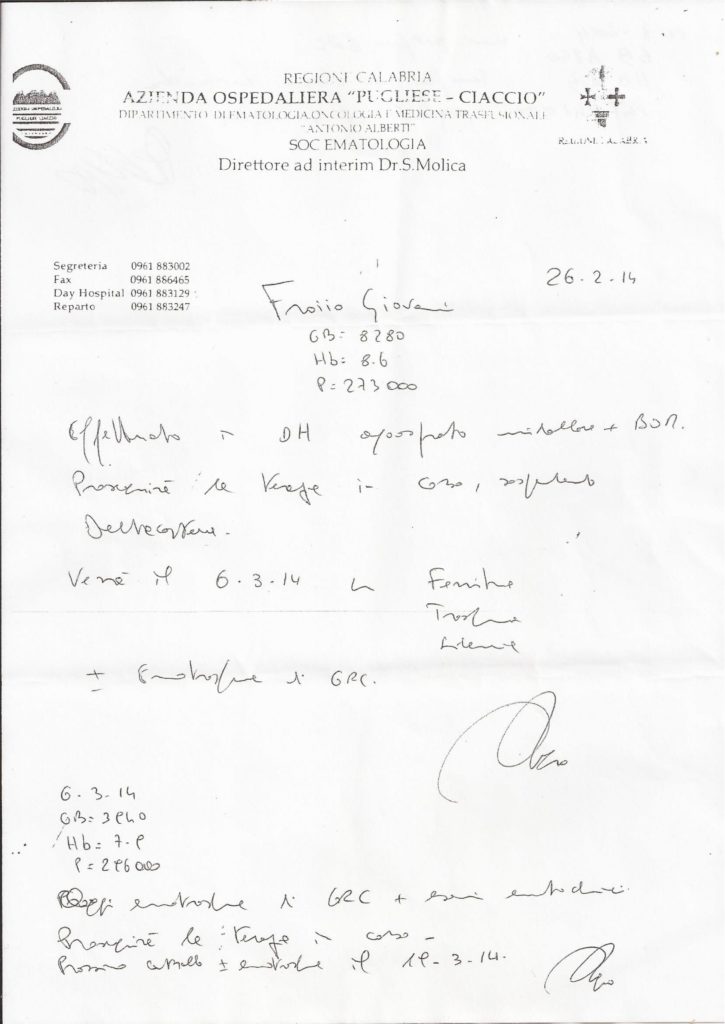 REGIONE CALABRIA
AZIENDA OSPEDALIERA "PUGLIESE - CIACCIO"
DIPARTIMENTO DI EMATOLOGIA, ONCOLOGIA E MEDICINA TRASFUSIONALE
"ANTONIO ALBERTI"
SOC EMATOLOGIA
Direttore ad interim Dr.S.Molica
REGIONE CALABRIA
Segreteria 0961 883002
Fax 0961 886465
Day Hospital 0961 883129
Reparto 0961 883247
26.2.14
Froiio Giovanni
GB= 8280
Hb= 8.6
P= 273000
Effettuato in DH agoaspirato midollare + BOM.
Proseguirà le terapie in corso, sospendendo
Verrà il 6-3-14 Ferritina
± Emotrasfusione di GRC.
6-3-14
Hb= 7.
Oggi emotrasfusione di GRC + esami
Proseguirà le terapie in corso -
Prossimo controllo ± emotrasfusione il -3-14.